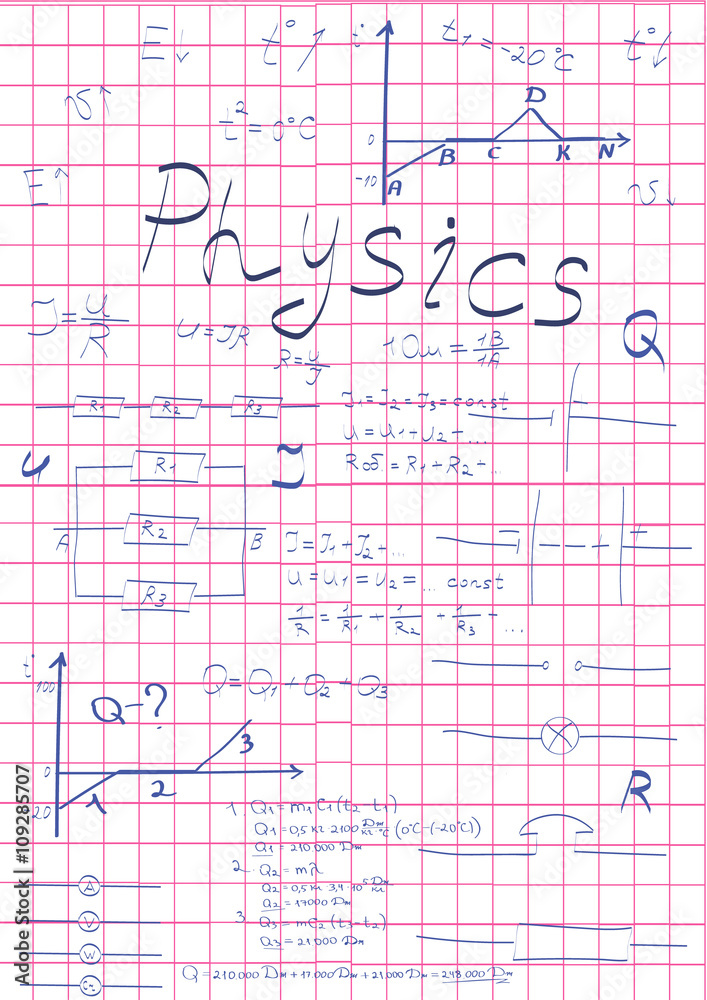 E↓ t° ↗ t° t₁ = -20°C t° ↓
v↑ t² = 0°C
D
0 B C K N
E↑ -10 A v↓
Physics
I = U/R U = IR R = U/I 1 Ом = 1В/1А Q
R₁ R₂ R₃ I₁ = I₂ = I₃ = const
U = U₁ + U₂ + ...
Rоб. = R₁ + R₂ + ...
U I
R₁
R₂
R₃
A B
- +
I = I₁ + I₂ + ...
U = U₁ = U₂ = ... const
1/R = 1/R₁ + 1/R₂ + 1/R₃ + ...
t° 100 Q = Q₁ + Q₂ + Q₃
Q - ?
3
0 2
20 1 R
1. Q₁ = m₁c₁(t₂ - t₁)
Q₁ = 0,5 кг · 2100 Дж/кг·°C (0°C - (-20°C))
Q₁ = 210.000 Дж
2. Q₂ = mλ
Q₂ = 0,5 кг · 3,4 · 10⁵ Дж/кг
Q₂ = 17000 Дж
3. Q₃ = mc₂(t₃ - t₂)
Q₃ = 21000 Дж
A
V
W
Q = 210.000 Дж + 17.000 Дж + 21.000 Дж = 248.000 Дж
Adobe Stock | #109285707